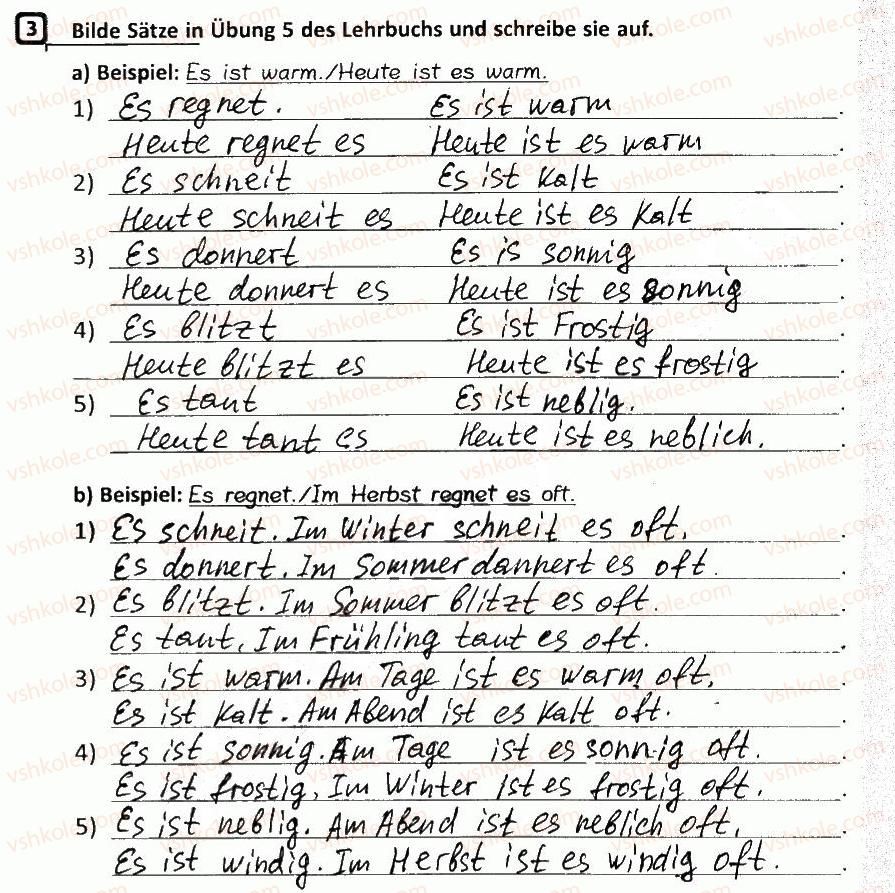 3 Bilde Sätze in Übung 5 des Lehrbuchs und schreibe sie auf.
a) Beispiel: Es ist warm./Heute ist es warm.
1) Es regnet. Es ist warm.
Heute regnet es Heute ist es warm.
2) Es schneit Es ist Kalt.
Heute schneit es Heute ist es Kalt.
3) Es donnert Es is sonnig.
Heute donnert es Heute ist es sonnig.
4) Es blitzt Es ist Frostig.
Heute blitzt es Heute ist es frostig.
5) Es taut Es ist neblig.
Heute taut es Heute ist es neblich.
b) Beispiel: Es regnet./Im Herbst regnet es oft.
1) Es schneit. Im Winter schneit es oft.
Es donnert. Im Sommer dannert es oft.
2) Es blitzt. Im Sommer blitzt es oft.
Es taut. Im Frühling taut es oft.
3) Es ist warm. Am Tage ist es warm oft.
Es ist kalt. Am Abend ist es kalt oft.
4) Es ist sonnig. Am Tage ist es sonnig oft.
Es ist frostig. Im Winter ist es frostig oft.
5) Es ist neblig. Am Abend ist es neblich oft.
Es ist windig. Im Herbst ist es windig oft.
vshkole.com